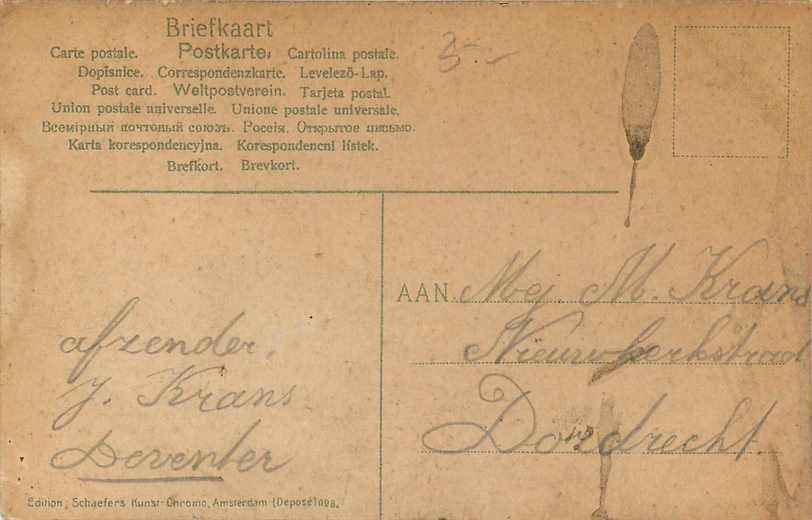 Briefkaart
Carte postale. Postkarte, Cartolina postale.
Dopisnice. Correspondenzkarte. Levelező-Lap.
Post card. Weltpostverein. Tarjeta postal.
Union postale universelle. Unione postale universale.
Всемірный почтовый союзъ. Россія. Открытое письмо.
Karta korespondencyjna. Korespondencni lístek.
Brefkort. Brevkort.
3-
AAN Mej. M. Krans
Nieuwkerkstraat
Dordrecht.
afzender.
J. Krans
Deventer
Edition; Schaefers Kunst-Chromo, Amsterdam (Deposé)